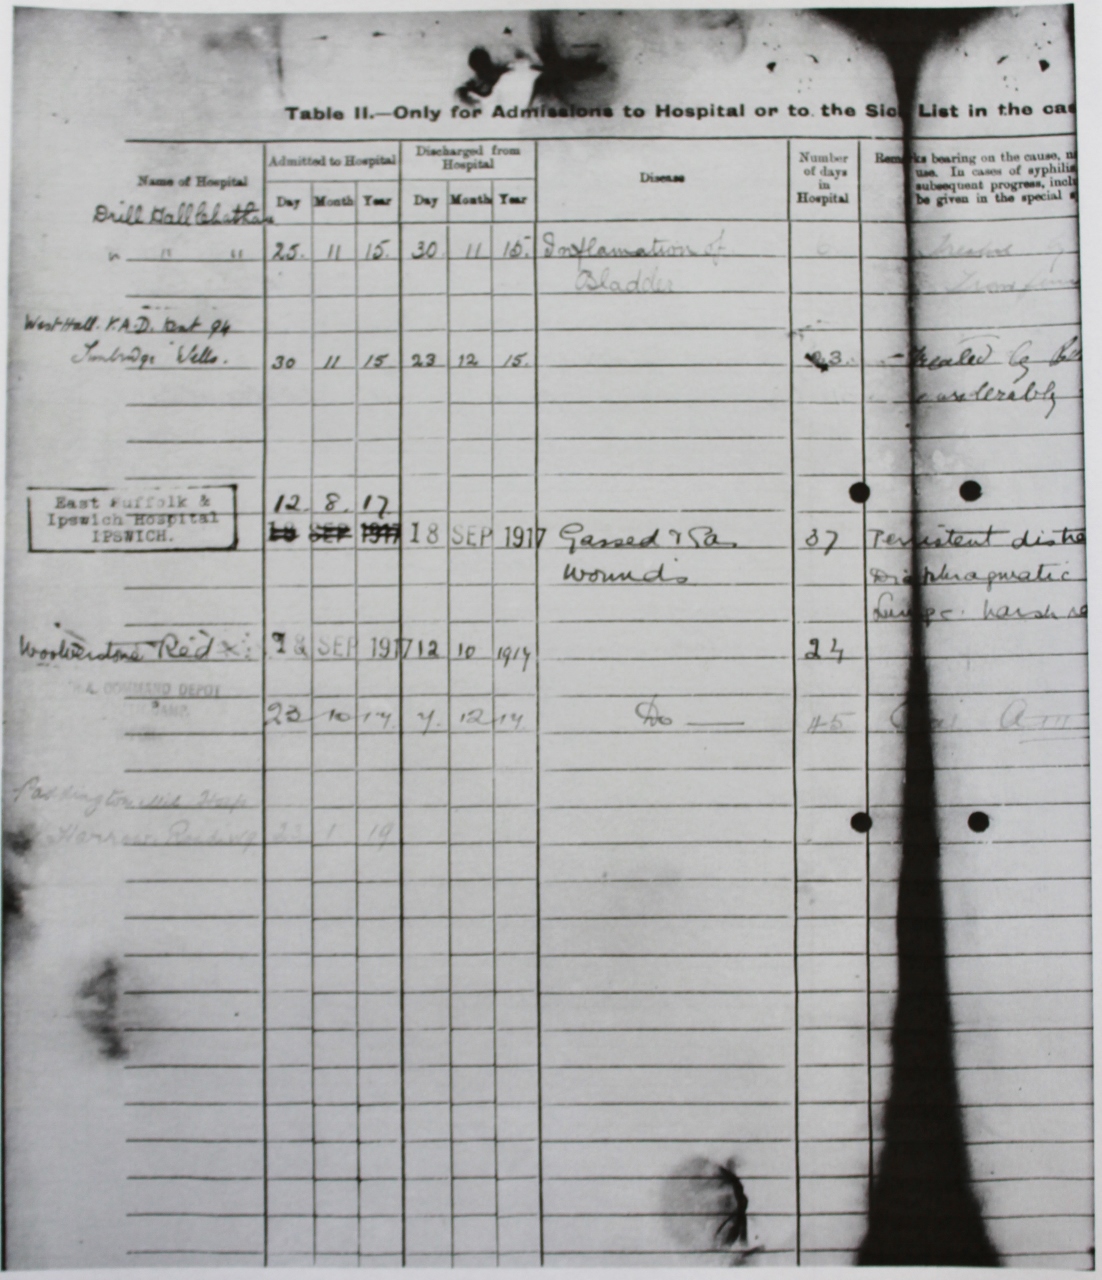 Table II.—Only for Admissions to Hospital or to the Sick List in the cas
Name of Hospital
Admitted to Hospital
Discharged from Hospital
Disease
Number of days in Hospital
Remarks bearing on the cause, n
use. In cases of syphilis
subsequent progress, incl
be given in the special
Day Month Year Day Month Year
Drill Hall Chatham
" " " 25. 11 15. 30. 11 15. Inflamation of
Bladder
West Hall. V.A.D. Kent 94
Tunbridge Wells. 30 11 15 23 12 15. 23. - Treated by
East Suffolk &
Ipswich Hospital
IPSWICH.
12. 8. 17
18 SEP 1917 18 SEP 1917 Gassed & 37 Persistent distre
Wounds Diaphragmatic
Lungs. harsh
Woolverstone Red X 18 SEP 1917 12 10 1917 24
COMMAND DEPOT
CAMP.
23 10 17 7. 12 17. Do — 45
Paddington Mil Hosp
Harrow Road 23 1 19